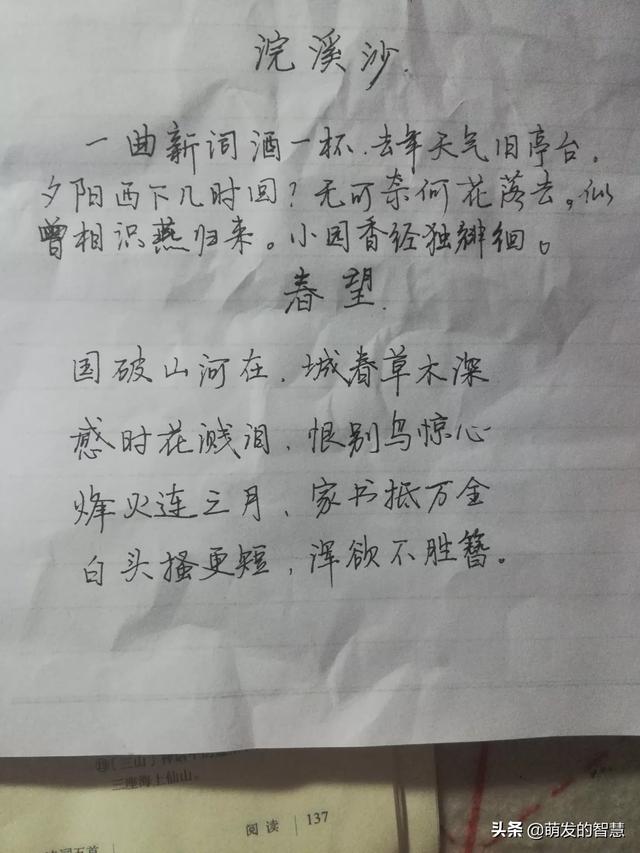 浣溪沙.
一曲新词酒一杯.去年天气旧亭台。
夕阳西下几时回?无可奈何花落去。似
曾相识燕归来。小园香经独辫徊。
春望.
国破山河在.城春草木深
感时花溅泪、恨别鸟惊心
烽火连三月、家书抵万金
白头搔更短,浑欲不胜簪。
三座海上仙山。
阅读 137
诗词五首
头条 @萌发的智慧